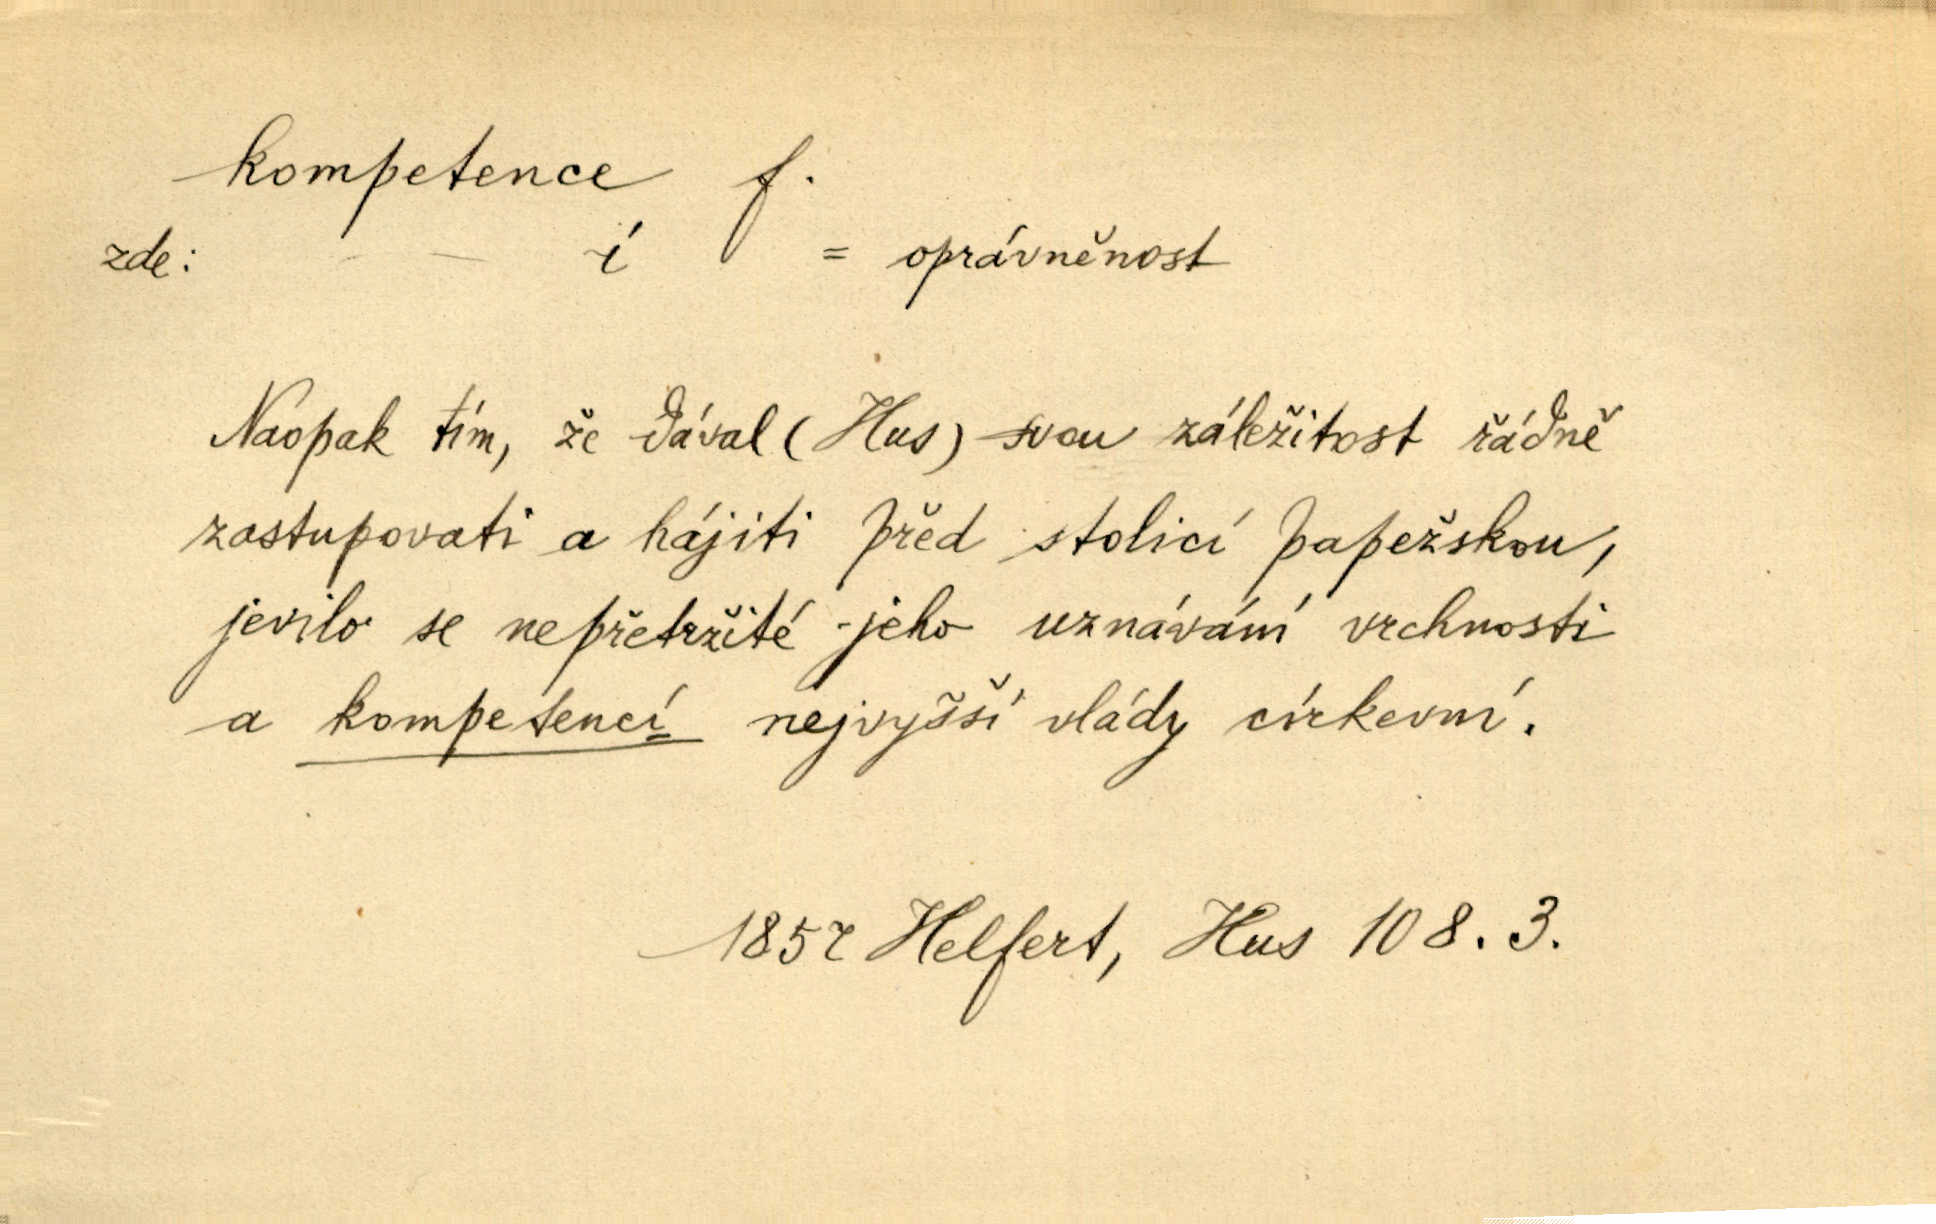 kompetence f.
zde: - - í = oprávněnost
Naopak tím, že dával (Hus) svou záležitost řádně
zastupovati a hájiti před stolicí papežskou,
jevilo se nepřetržité jeho uznávání vrchnosti
a kompetencí nejvyšší vlády církevní.
1857 Helfert, Hus 108. 3.